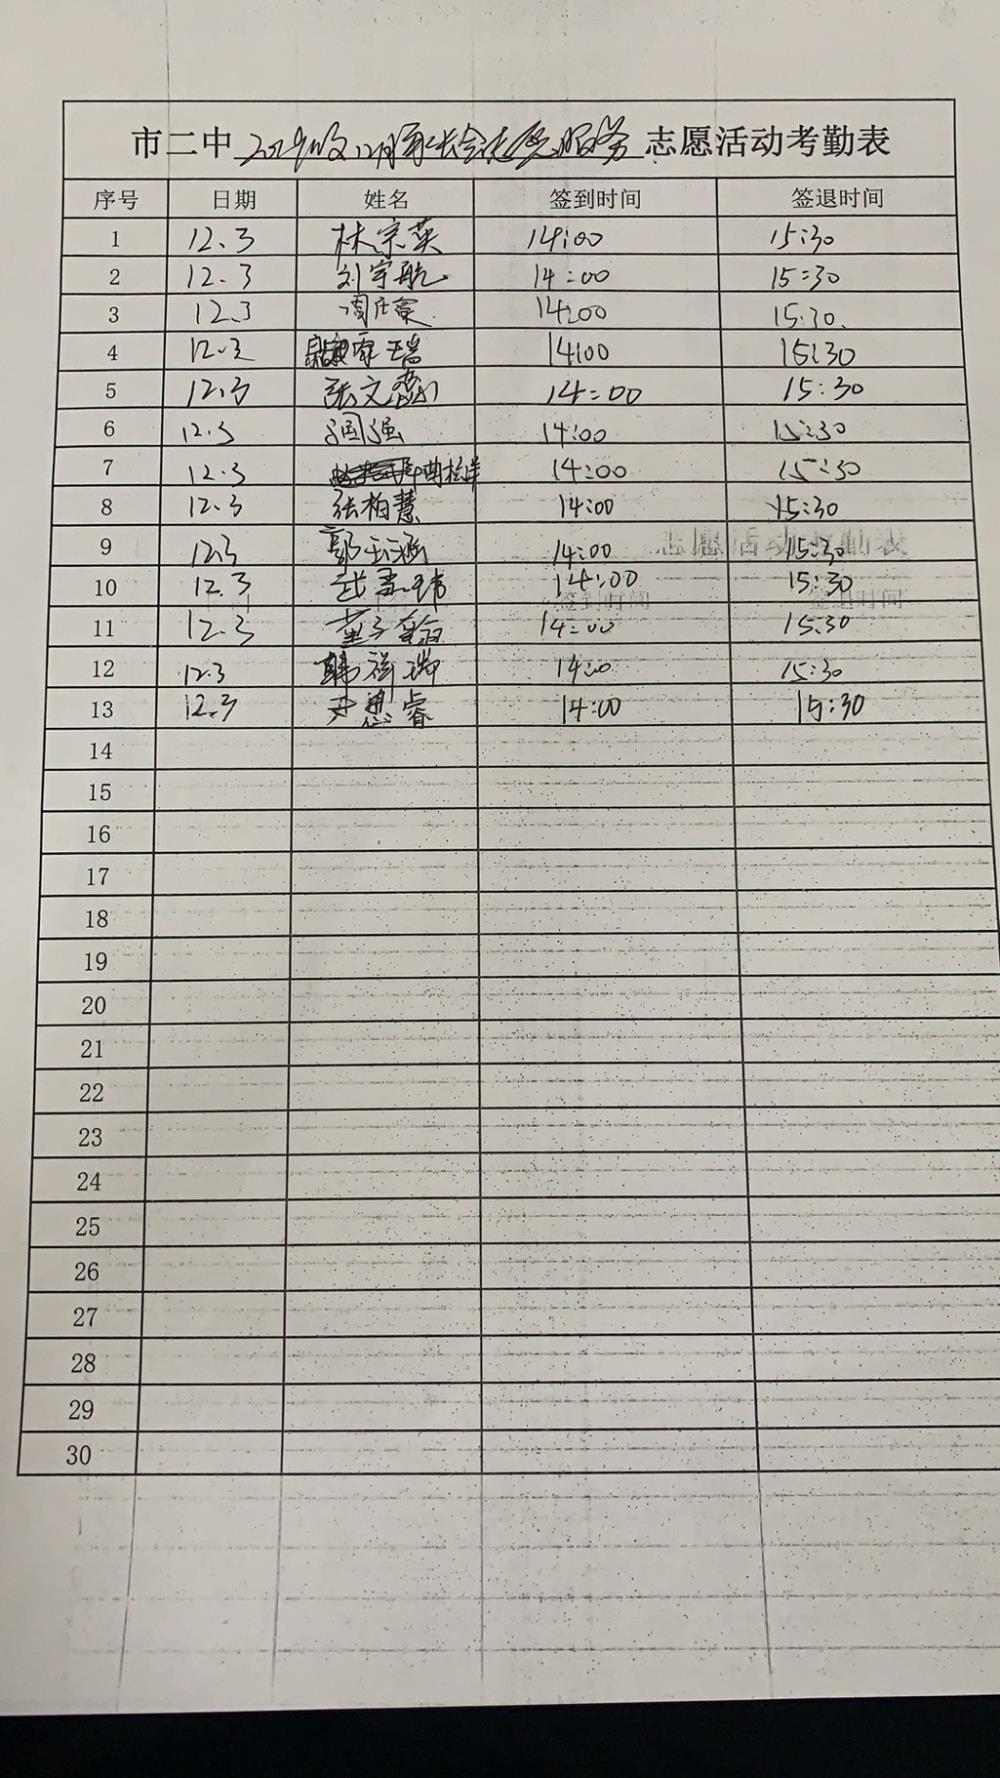 市二中 级12月家长会志愿服务 志愿活动考勤表
序号 日期 姓名 签到时间 签退时间
1 12.3 林宗英 14:00 15:30
2 12.3 刘宇航 14:00 15:30
3 12.3 14:00 15:30.
4 12.3 14:00 15:30
5 12.3 张文 14:00 15:30
6 12.3 强 14:00 15:30
7 12.3 14:00 15:30
8 12.3 张柏慧 14:00 15:30
9 12.3 郭玉涵 14:00 15:30
10 12.3 14:00 15:30
11 12.3 董子 14:00 15:30
12 12.3 韩祥瑞 14:00 15:30
13 12.3 尹思睿 14:00 15:30
14
15
16
17
18
19
20
21
22
23
24
25
26
27
28
29
30